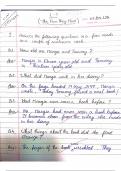 L-1
"The Fun They Had"
Q. Answer the following questions in a few words
or a couple of sentences each.
Q.1 How old are Margie and Tommy?
A. Margie is Eleven year old and Tommy
is thirteen years old.
Q.2 What did Margie write in her diary?
A. On the page headed 17 May 2157, Margie
wrote, "Today Tommy found a real book!
Q.3 Had Margie ever seen a book before?
A. No, Margie had never seen a book before
Q.4 What things about the book did she find
strange?
A. The pages of the book They